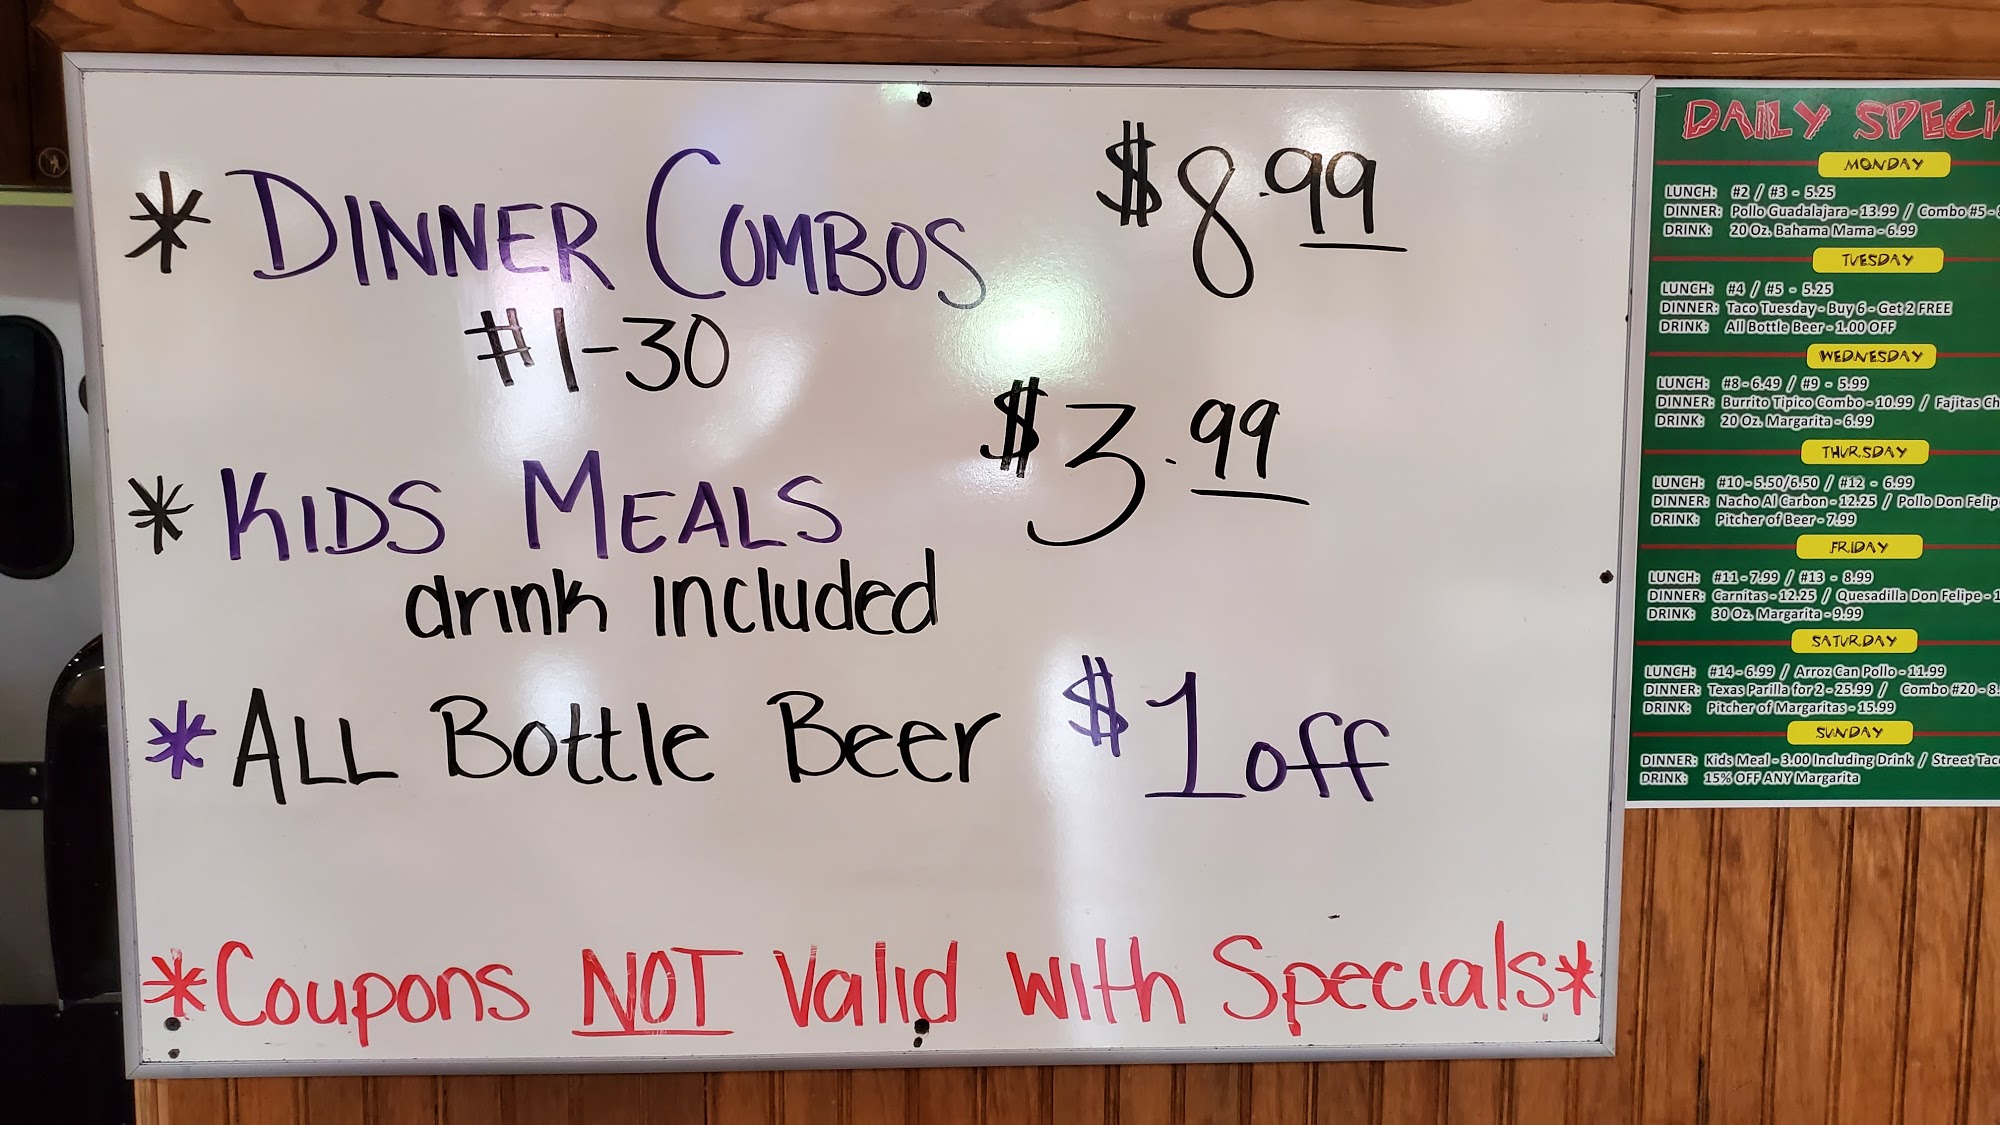 * DINNER COMBOS $8.99
#1-30
* KIDS MEALS $3.99
drink included
* ALL Bottle Beer $1 off
*Coupons NOT Valid with Specials*
DAILY
MONDAY
LUNCH: #2 / #3 - 5.25
DINNER: Pollo Guadalajara - 13.99 / Combo #5 -
DRINK: 20 Oz. Bahama Mama - 6.99
TUESDAY
LUNCH: #4 / #5 - 5.25
DINNER: Taco Tuesday - Buy 6 - Get 2 FREE
DRINK: All Bottle Beer - 1.00 OFF
WEDNESDAY
LUNCH: #8 - 6.49 / #9 - 5.99
DINNER: Burrito Tipico Combo - 10.99 / Fajitas
DRINK: 20 Oz. Margarita - 6.99
THURSDAY
LUNCH: #10 - 5.50/6.50 / #12 - 6.99
DINNER: Nacho Al Carbon - 12.25 / Pollo Don
DRINK: Pitcher of Beer - 7.99
FRIDAY
LUNCH: #11 - 7.99 / #13 - 8.99
DINNER: Carnitas - 12.25 / Quesadilla Don Felipe -
DRINK: 30 Oz. Margarita - 9.99
SATURDAY
LUNCH: #14 - 6.99 / Arroz Can Pollo - 11.99
DINNER: Texas Parilla for 2 - 25.99 / Combo #20 -
DRINK: Pitcher of Margaritas - 15.99
SUNDAY
DINNER: Kids Meal - 3.00 Including Drink / Street
DRINK: 15% OFF ANY Margarita